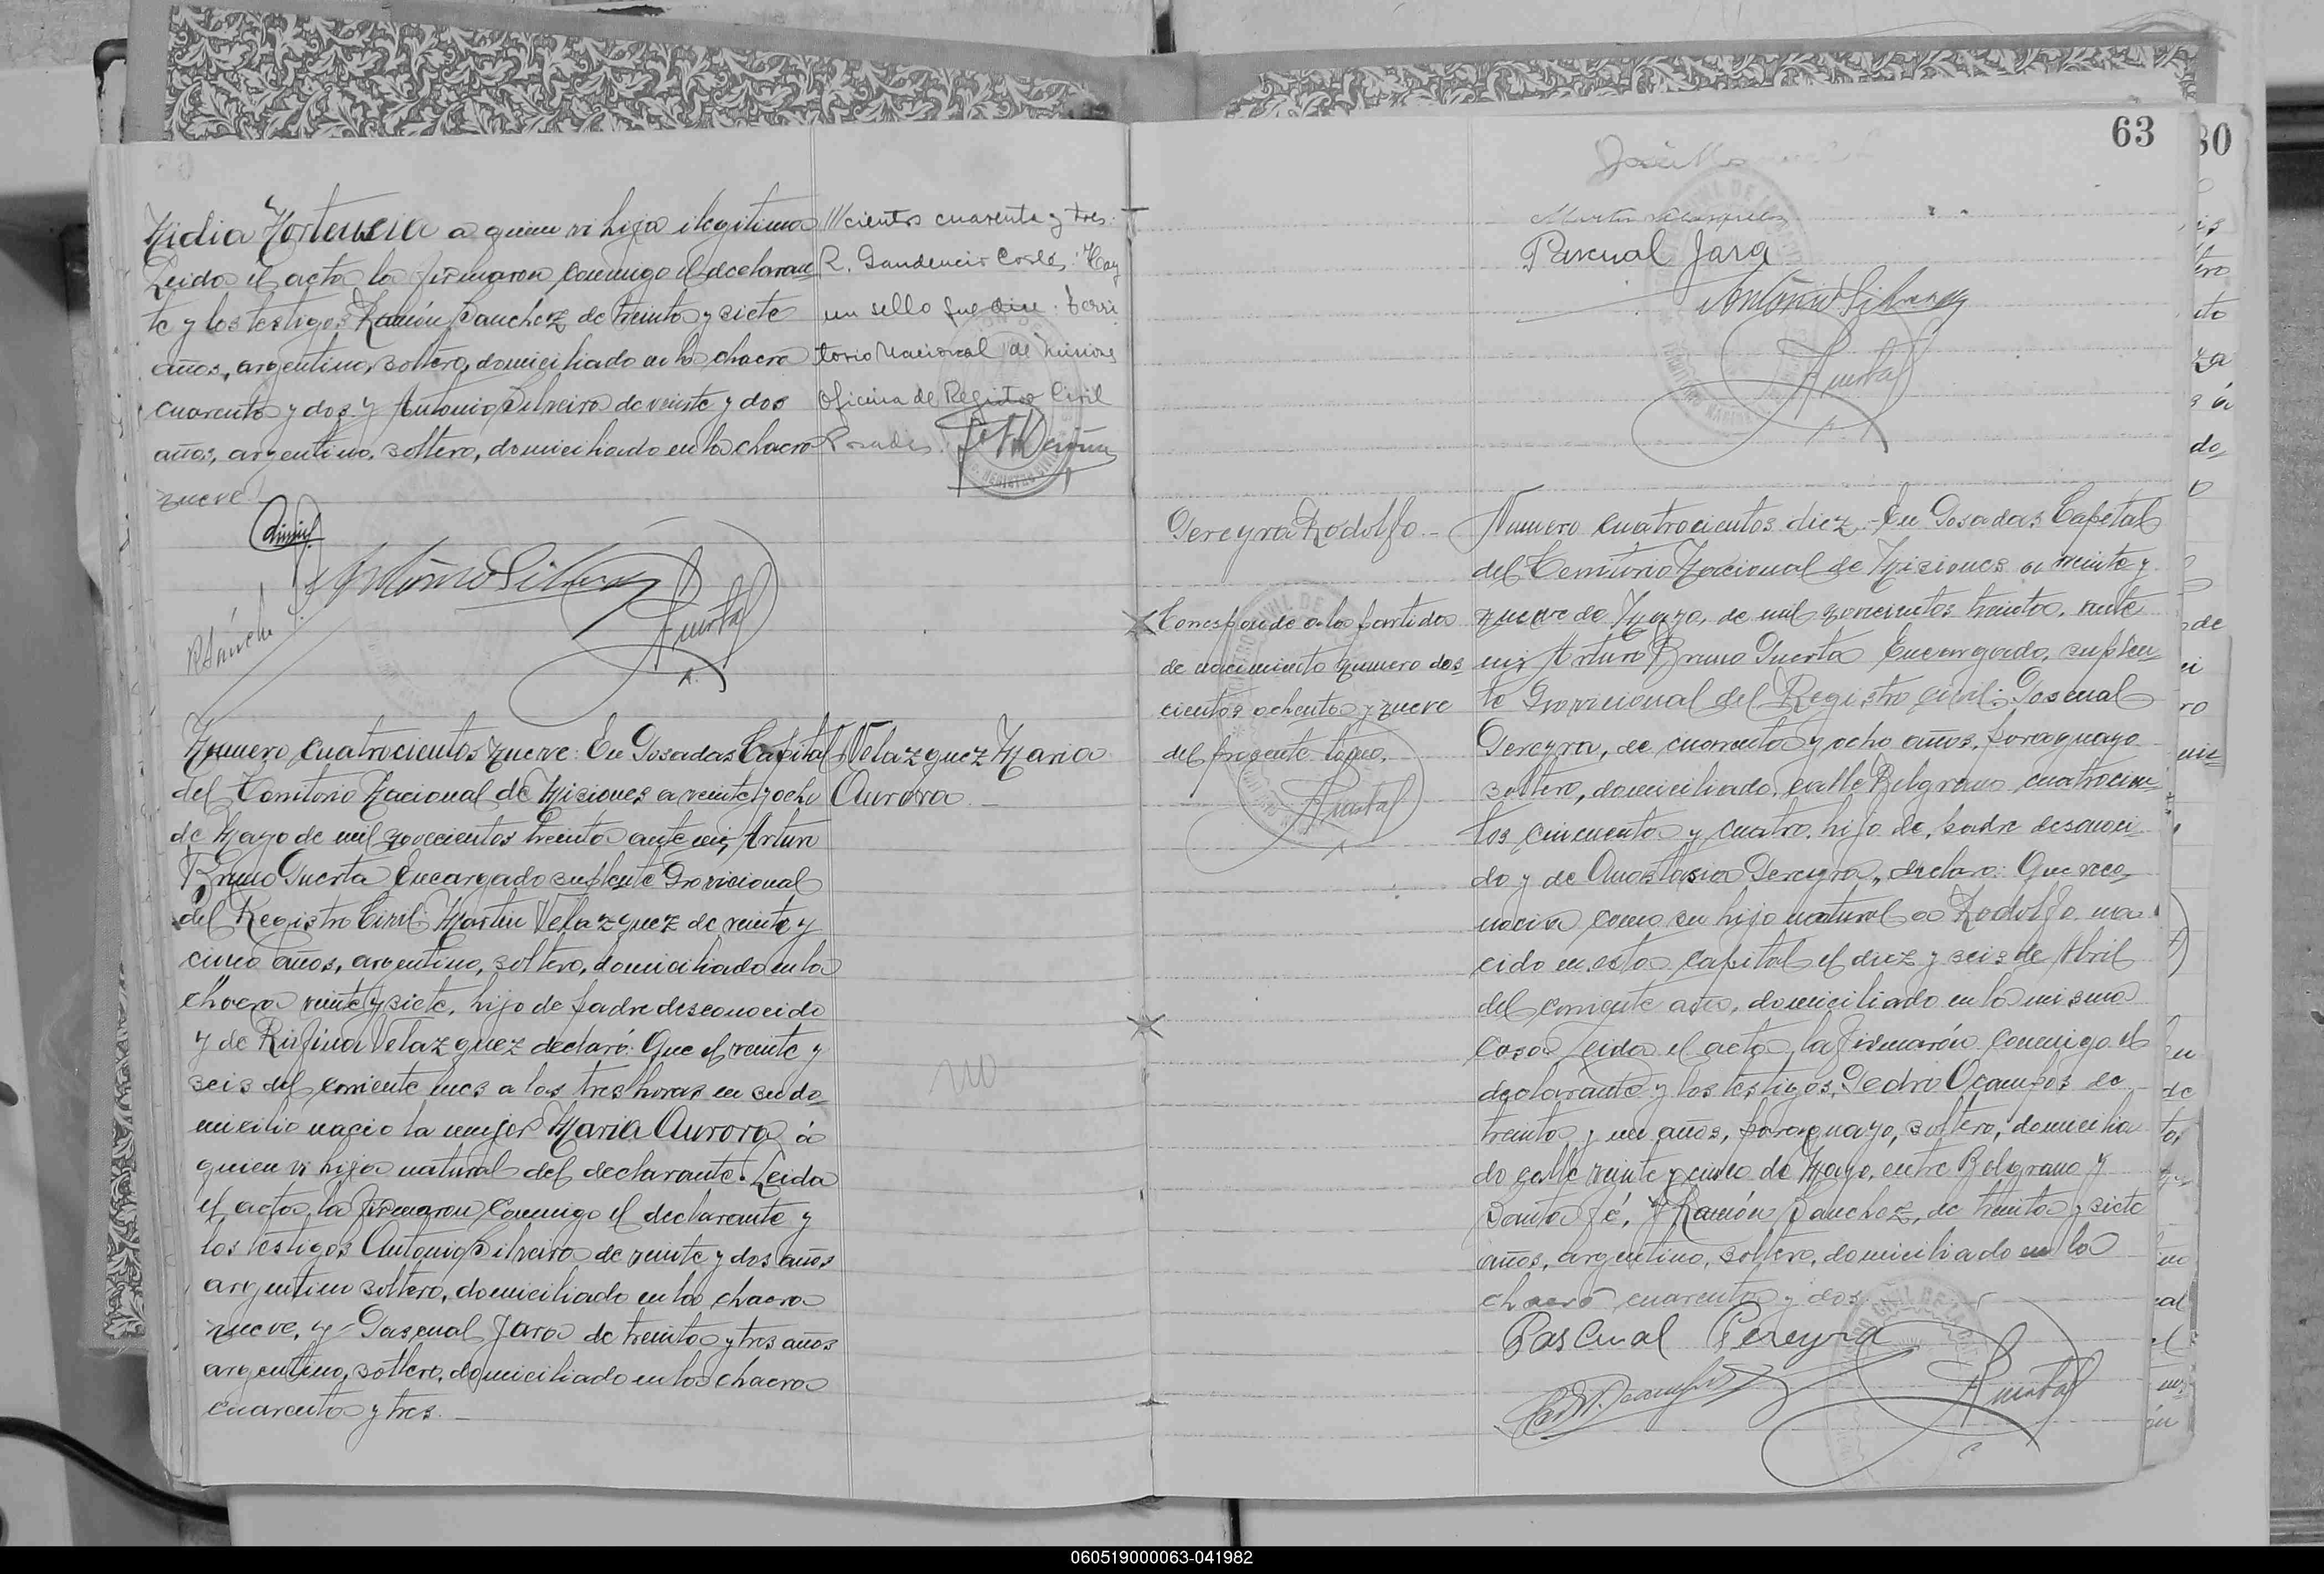 Nidia Hortensia a quien vi hija ilegitima
Leida el acta la firmaron conmigo el declaran
te y los testigos Ramón Sanchez de treinta y siete
años, argentino, soltero, domiciliado en la chacra
cuarenta y dos y Antonio Silveira de veinte y dos
años, argentino, soltero, domiciliado en la chacra
nueve
cientos cuarenta y tres.
R. Gaudencio Hay
un sello que dice: terri
torio Nacional de Misiones
Oficina de Registro Civil
Posadas
R Sánchez
Antonio Silveira
A Puerta
Numero cuatrocientos nueve: En Posadas Capital
del Territorio Nacional de Misiones a veinte y ocho
de Mayo de mil novecientos treinta ante mi, Arturo
Bruno Puerta Encargado suplente Provicional
del Registro Civil: Martin Velazquez de veinte y
cinco años, argentino, soltero, domiciliado en la
chacra veinte y siete, hijo de padre desconocido
y de Rufina Velazquez declaró: Que el veinte y
seis del corriente mes a las tres horas en su do-
micilio nacio la mujer Maria Aurora á
quien vi hija natural del declarante. Leida
el acta la firmaron conmigo el declarante y
los testigos Antonio Silveira de veinte y dos años
argentino soltero, domiciliado en la chacra
nueve, y Pascual Jara de treinta y tres años
argentino, soltero, domiciliado en la chacra
cuarenta y tres.
Velazquez Maria
Aurora
63
30
Martin Velazquez
Pascual Jara
Antonio Silveira
A Puerta
Pereyra Rodolfo
Corresponde a la partida
de nacimiento numero dos
cientos ochenta y nueve
del presente tomo.
A Puerta
Numero cuatrocientos diez. En Posadas Capital
del Territorio Nacional de Misiones a veinte y
nueve de Mayo, de mil novecientos treinta, ante
mi Arturo Bruno Puerta Encargado, suplen-
te Provicional del Registro civil: Pascual
Pereyra, de cuarenta y ocho años, paraguayo
soltero, domiciliado, calle Belgrano cuatrocien-
tos cincuenta y cuatro, hijo de, padre desconoci-
do y de Anastasia Pereyra, declara: Que reco-
nocia como su hijo natural a Rodolfo na
cido en esta Capital el diez y seis de Abril
del corriente año, domiciliado en la misma
casa Leida el acta la firmarón conmigo el
declarante y los testigos, Pedro Ocampos de
treinta y un años, paraguayo, soltero, domicilia
do calle veinte y cinco de Mayo, entre Belgrano y
Santa Fé, y Ramón Sanchez, de treinta y siete
años, argentino, soltero, domiciliado en la
chacra cuarenta y dos
Pascual Pereyra
A Puerta
060519000063-041982